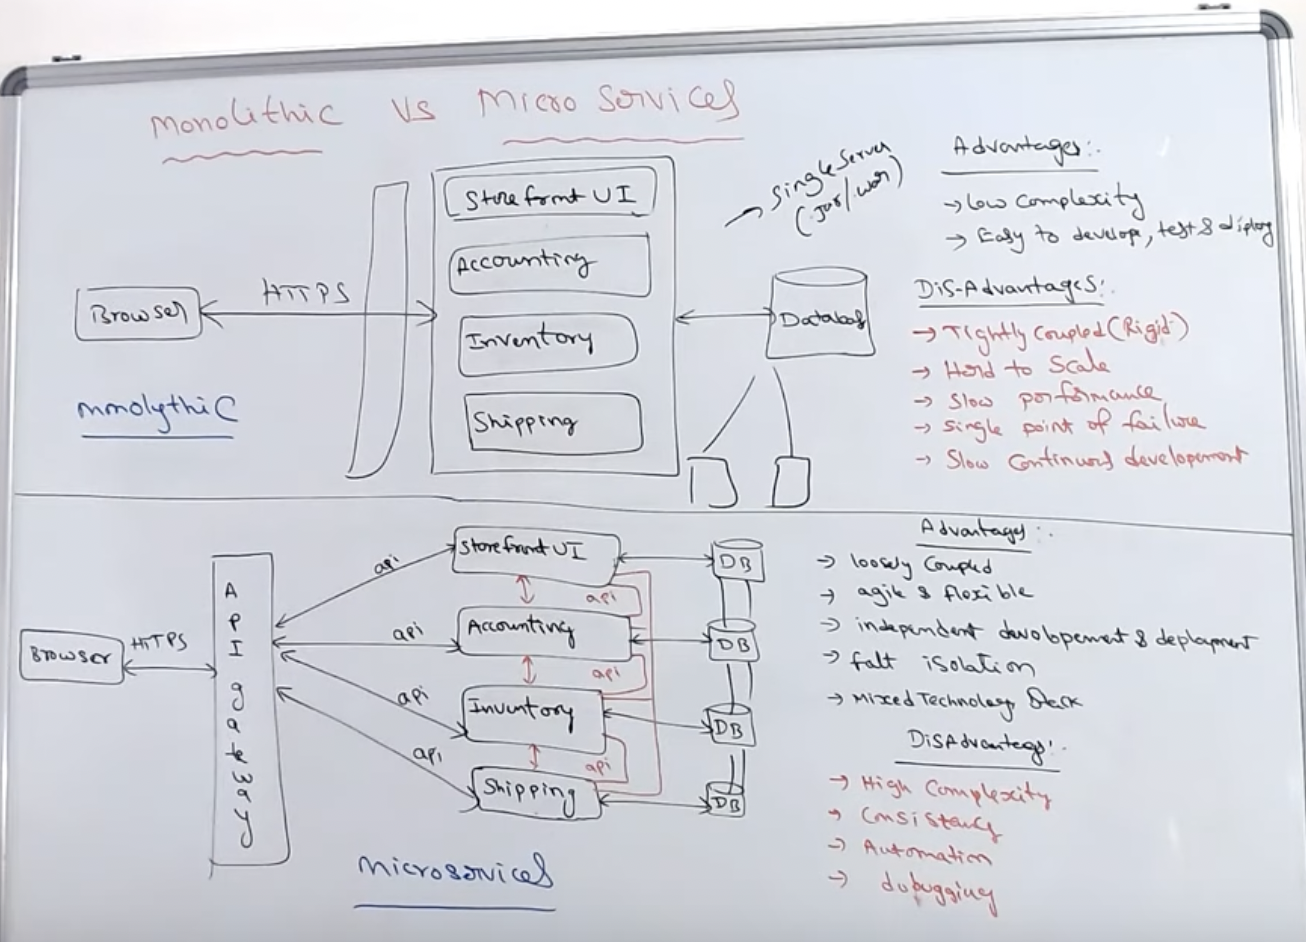 Monolithic VS Micro Services
Single Server
(.jar/.war)
Storefront UI
Accounting
Inventory
Shipping
Browser
HTTPS
Database
Monolythic
Advantages:
→ Low Complexity
→ Easy to develope, test & diploy
Dis-Advantages:
→ Tightly Coupled (Rigid)
→ Hard to Scale
→ Slow performance
→ Single point of failure
→ Slow Continuous developement
Browser
HTTPS
API gateway
api
api
api
api
Storefront UI
Accounting
Inventory
Shipping
api
api
api
DB
DB
DB
DB
Microservices
Advantages:
→ loosely Coupled
→ agile & flexible
→ independent devolopement & deplayment
→ falt isolation
→ Mixed Technology Stack
DisAdvantages:
→ High Complexity
→ Consistency
→ Automation
→ dubugging